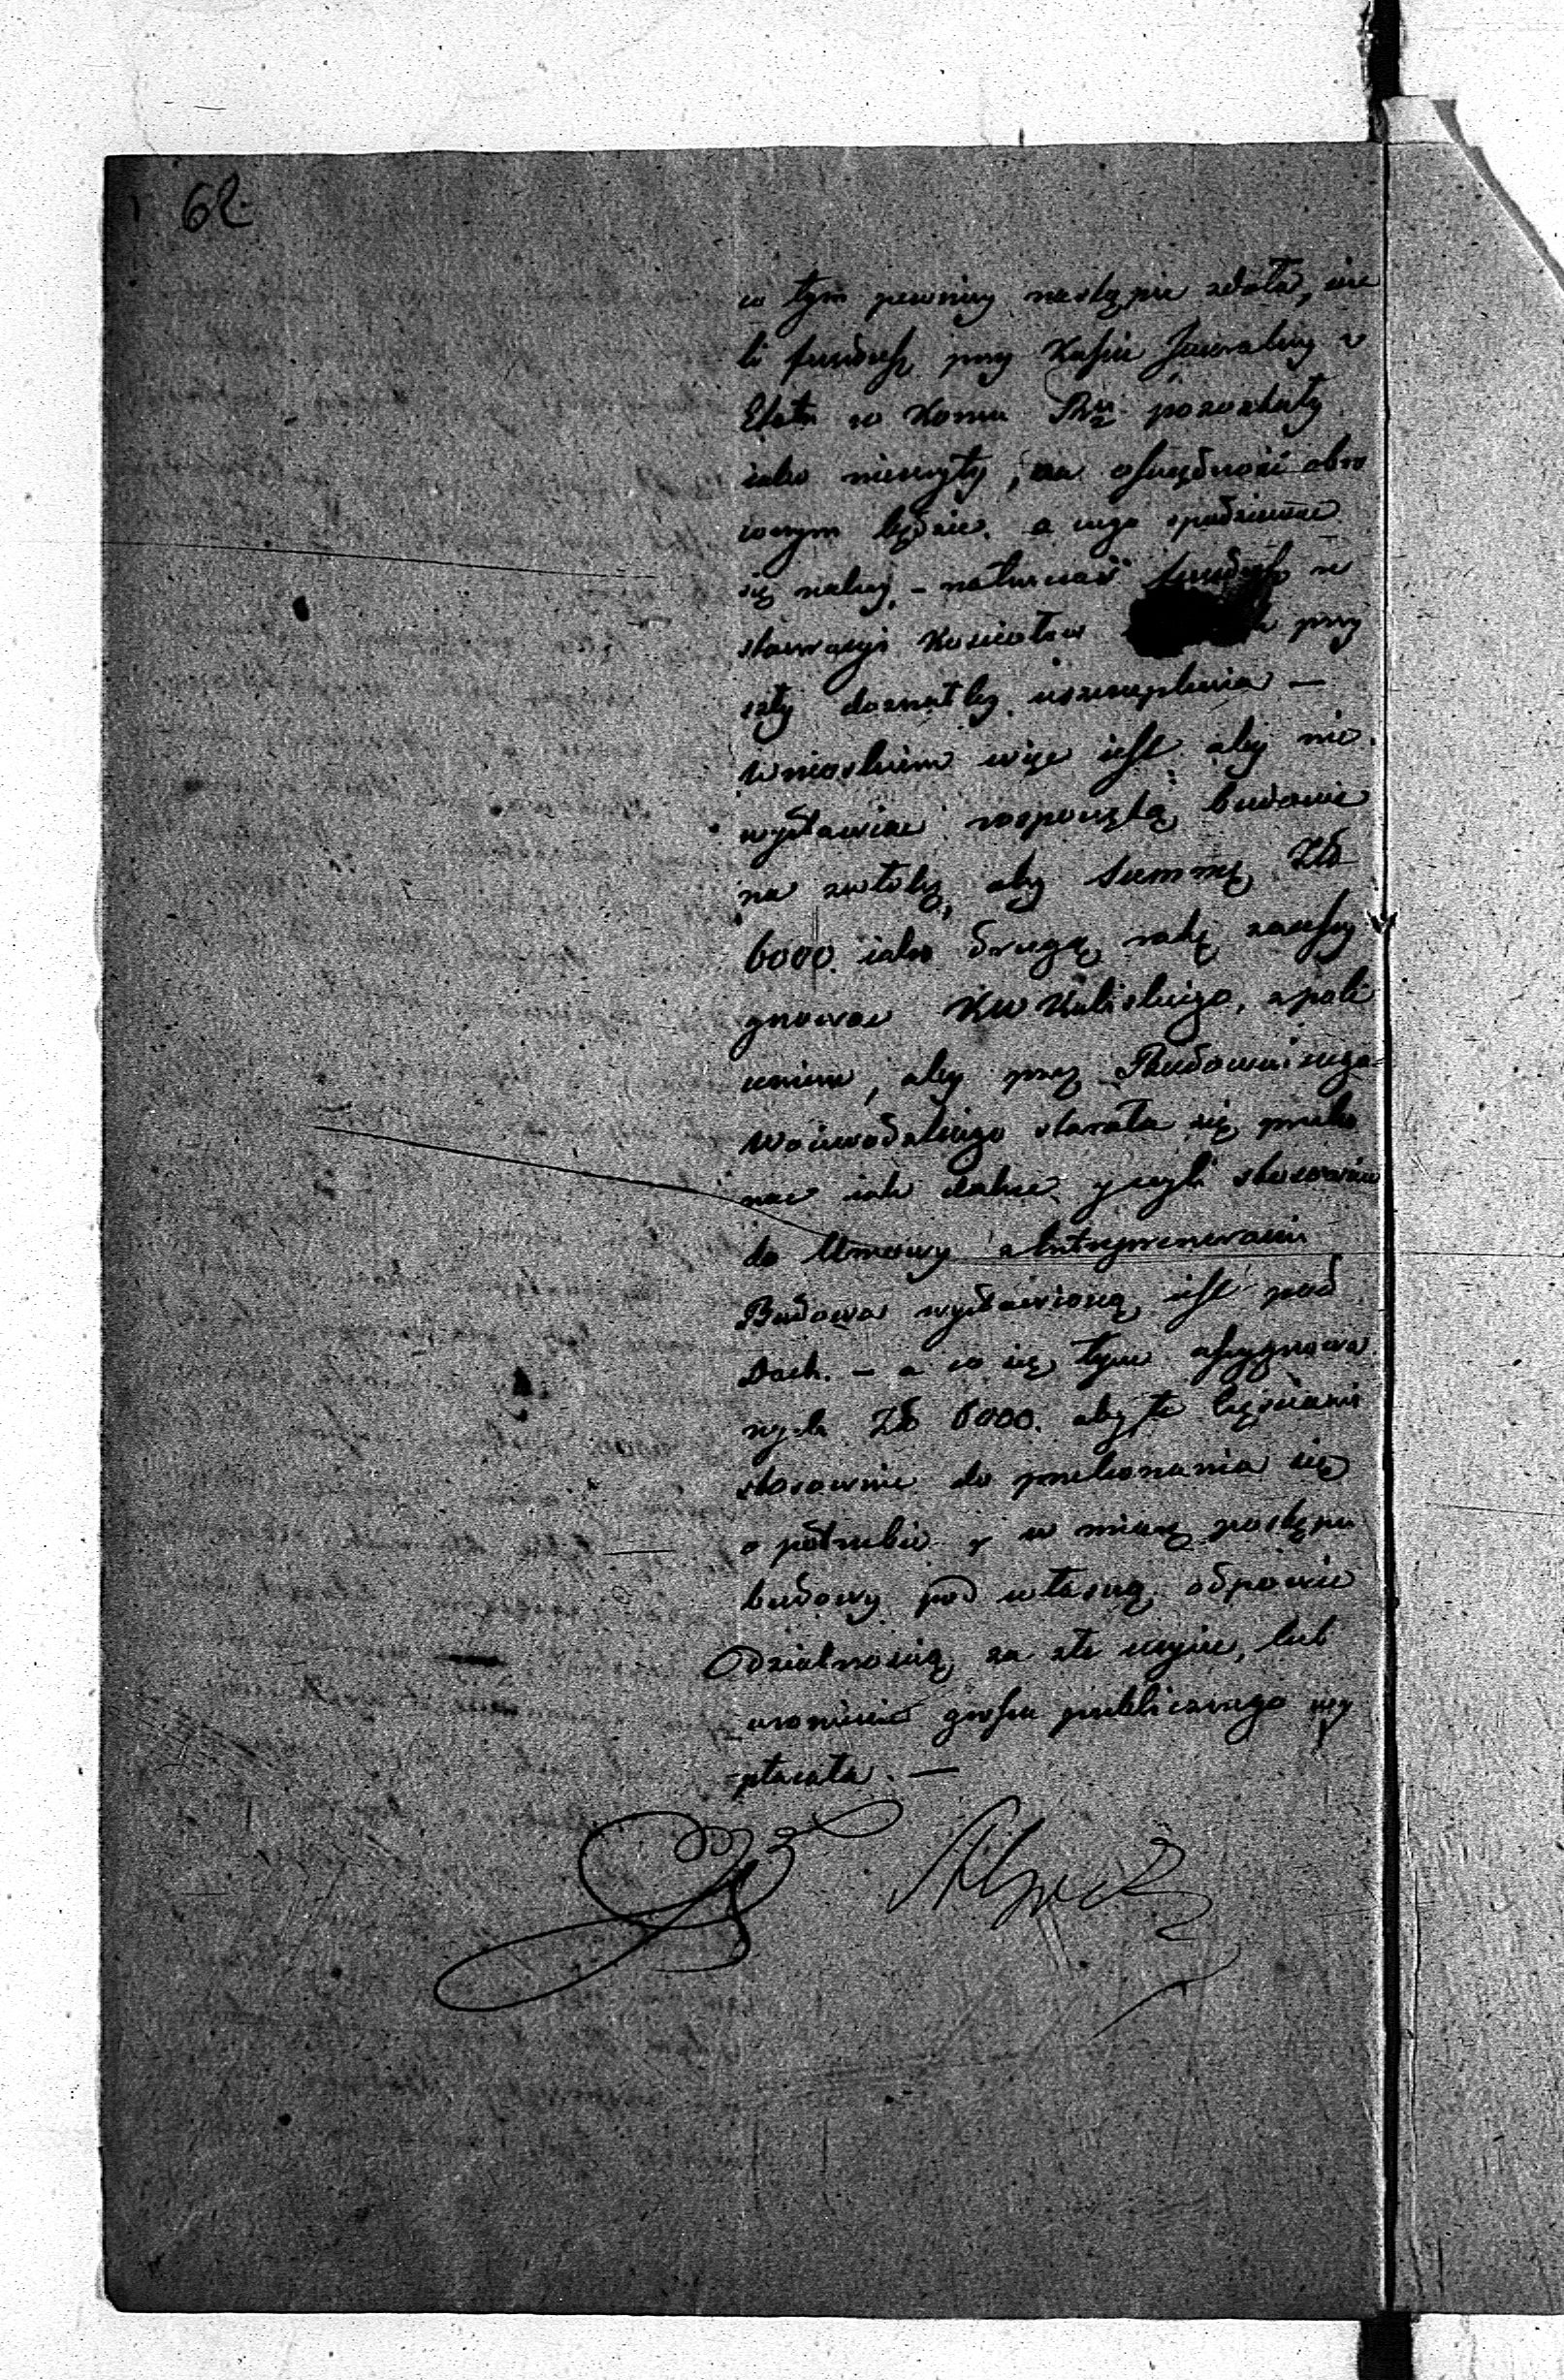 62.
w tym pewniey nastąpić zdoła, ieże
li fundusz przy Kassie Jeneralney z
Etatu w końcu Rku pozostały
iako nieużyty, na oszczędność obró
conym będzie. a czego spodziewać
się należy, – natenczas fundusz re
stauracyi Kościołów przy
szły doznałby uszczuplenia —
Wnioskiem więc iest aby nie
wystawiać rospoczętą budowlę
na szwłokę, aby Summę Złp
6000. iako drugą ratę zaassy
gnować KW Kaliskiego, z pole
ceniem, aby przez Budowniczego
Woiewodzkiego starała się przeko
nać iak dalece, y czyli stosownie
do Umowy z Entreprenerami
Budowa wystawioną iest pod
Dach. – a co się tycze assygnowa
nych Złp 6000. aby te częściami
stosownie do przekonania się
o potrzebie y w miarę postępu
budowy pod własną odpowie
dzialnością za złe użycie, lub
uronienie grosza publicznego wy
płacała. —